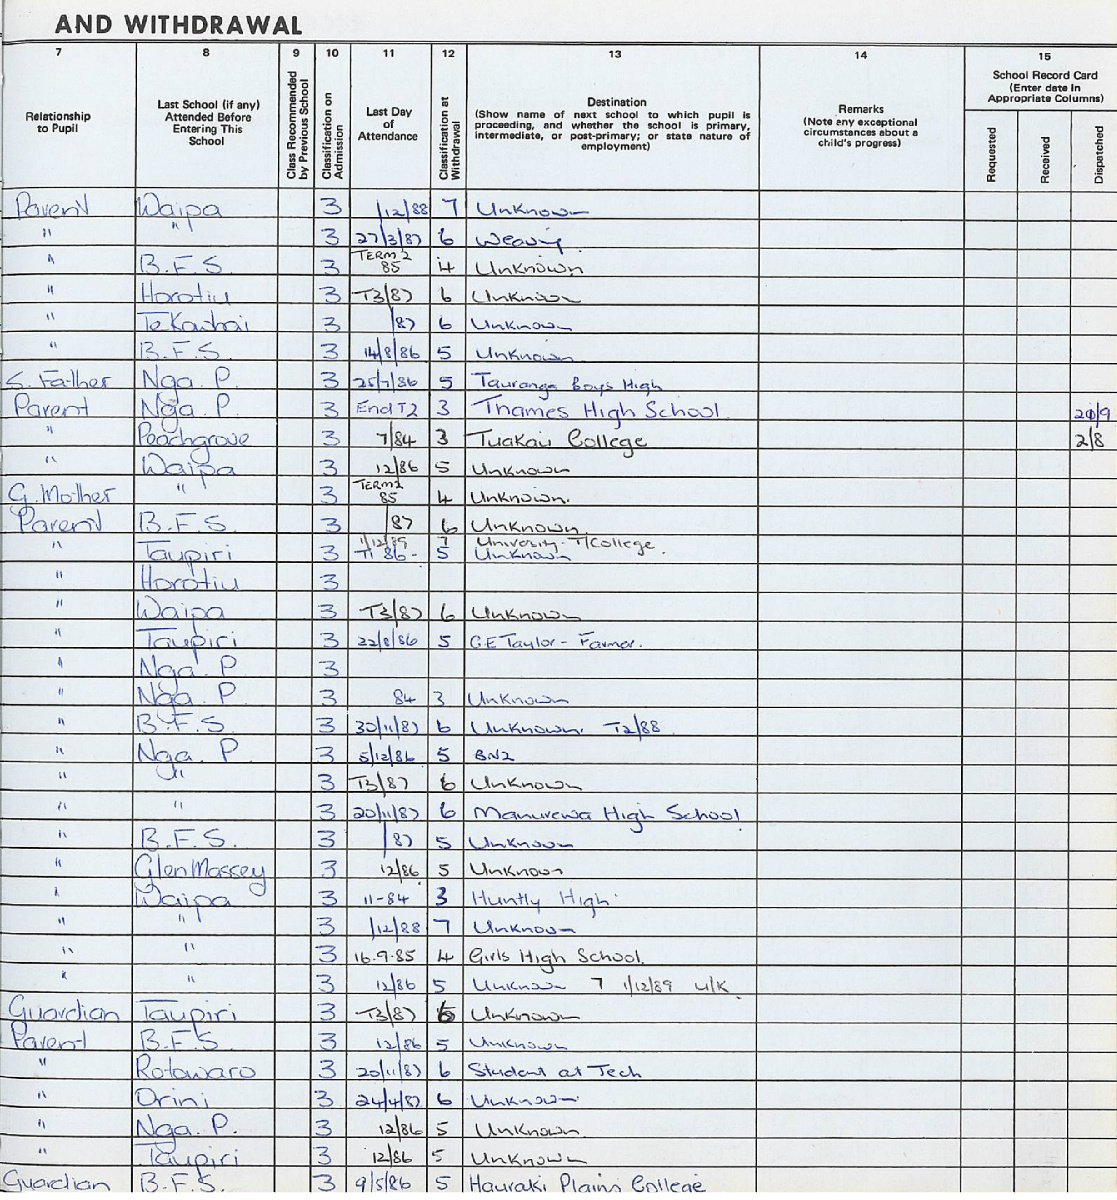 AND WITHDRAWAL
7 8 9 10 11 12 13 14 15
Relationship to Pupil
Last School (if any) Attended Before Entering This School
Class Recommended by Previous School
Classification on Admission
Last Day of Attendance
Classification at Withdrawal
Destination (Show name of next school to which pupil is proceeding, and whether the school is primary, intermediate, or post-primary; or state nature of employment)
Remarks (Note any exceptional circumstances about a child's progress)
School Record Card (Enter date in Appropriate Columns)
Requested Received Dispatched
Parent Waipa 3 1/12/88 7 Unknown
" " 3 27/3/87 6 Weaving
" B.F.S. 3 TERM 2 85 4 Unknown
" Horotiu 3 T3/87 6 Unknown
" Te Kowhai 3 /87 6 Unknown
" B.F.S. 3 14/8/86 5 Unknown
S. Father Nga. P. 3 25/7/86 5 Tauranga Boys High
Parent Nga. P. 3 End T2 3 Thames High School 20/9
" Peachgrove 3 7/84 3 Tuakau College 2/8
" Waipa 3 12/86 5 Unknown
G. Mother " 3 TERM 2 85 4 Unknown.
Parent B.F.S. 3 /87 6 Unknown
1/12/89 7 University - T/College.
" Taupiri 3 T1 86 - 5 Unknown
" Horotiu 3
" Waipa 3 T3/87 6 Unknown
" Taupiri 3 22/8/86 5 G.E Taylor - Farmer.
" Nga. P. 3
" Nga. P. 3 84 3 Unknown
" B.F.S 3 30/11/87 6 Unknown. T2/88
" Nga. P. 3 5/12/86 5 BNZ
" " 3 T3/87 6 Unknown
" " 3 20/11/87 6 Manurewa High School
" B.F.S. 3 /87 5 Unknown
" Glen Massey 3 12/86 5 Unknown
" Waipa 3 11-84 3 Huntly High
" " 3 1/12/88 7 Unknown
" " 3 16.9.85 4 Girls High School.
" " 3 12/86 5 Unknown 7 1/12/89 U/K
Guardian Taupiri 3 T3/87 6 Unknown
Parent B.F.S. 3 12/86 5 Unknown
" Rotowaro 3 20/11/87 6 Student at Tech
" Orini 3 24/4/87 6 Unknown
" Nga. P. 3 12/86 5 Unknown
" Taupiri 3 12/86 5 Unknown
Guardian B.F.S. 3 9/5/86 5 Hauraki Plains College